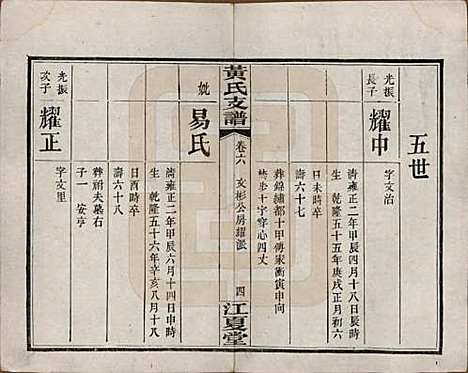 五世
光振長子
耀中
字文治
清雍正二年甲辰四月十八日辰時
生 乾隆五十五年庚戌正月初六
日未時卒
壽六十七
葬錦繡都十甲傅家衝寅申向
穿心四丈
黃氏支譜
卷六
文彬公房耀派
四
江夏堂
妣
易氏
清雍正二年甲辰六月十四日申時
生 乾隆五十六年辛亥八月十八
日酉時卒
壽六十八
葬祔夫墓右
子一 安亨
光振次子
耀正
字文里